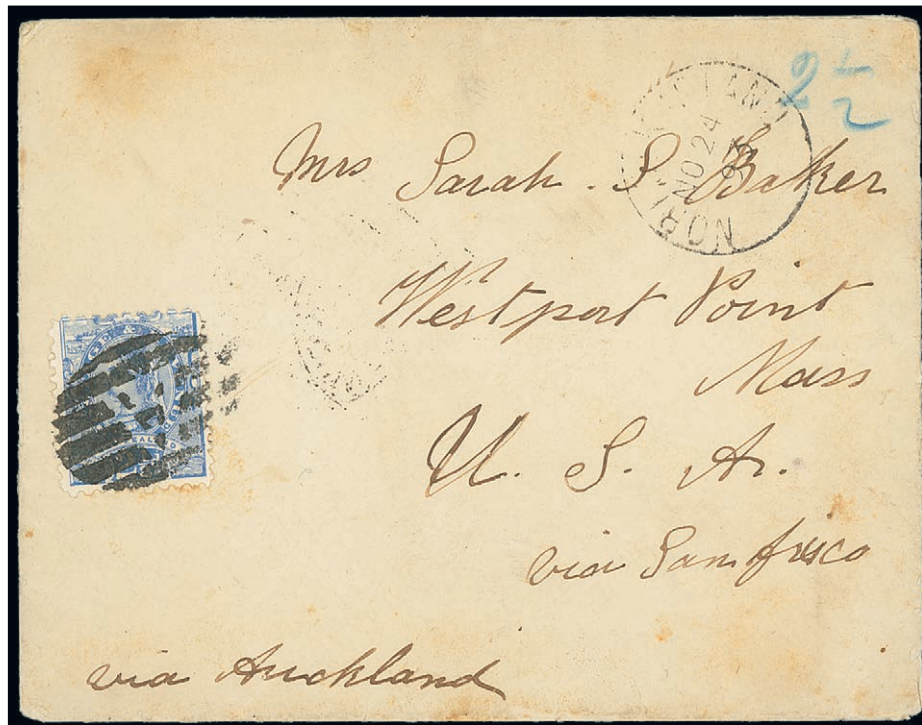 2 1/2
NO 24
93
Mrs Sarah . S. Baker
Westport Point
Mass
U. S. A.
via San frisco
via Auckland